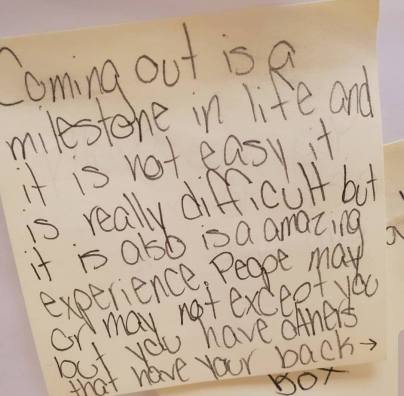 Coming out is a
milestone in life and
it is not easy it
is really difficult but
it is also is a amazing
experience. Peope may
or may not except you
but you have others
that have your back →
BOX